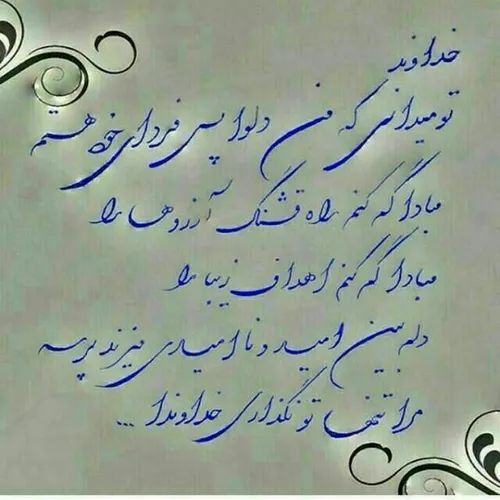 خداوند
تو میدانی که من دلواپس فردای خود هستم
مبادا گم کنم راه قشنگ آرزوها را
مبادا گم کنم اهداف زیبا را
دلم بین امید و نا امیدی میزند پرسه
مرا تنها تو نگذاری خداوندا ...